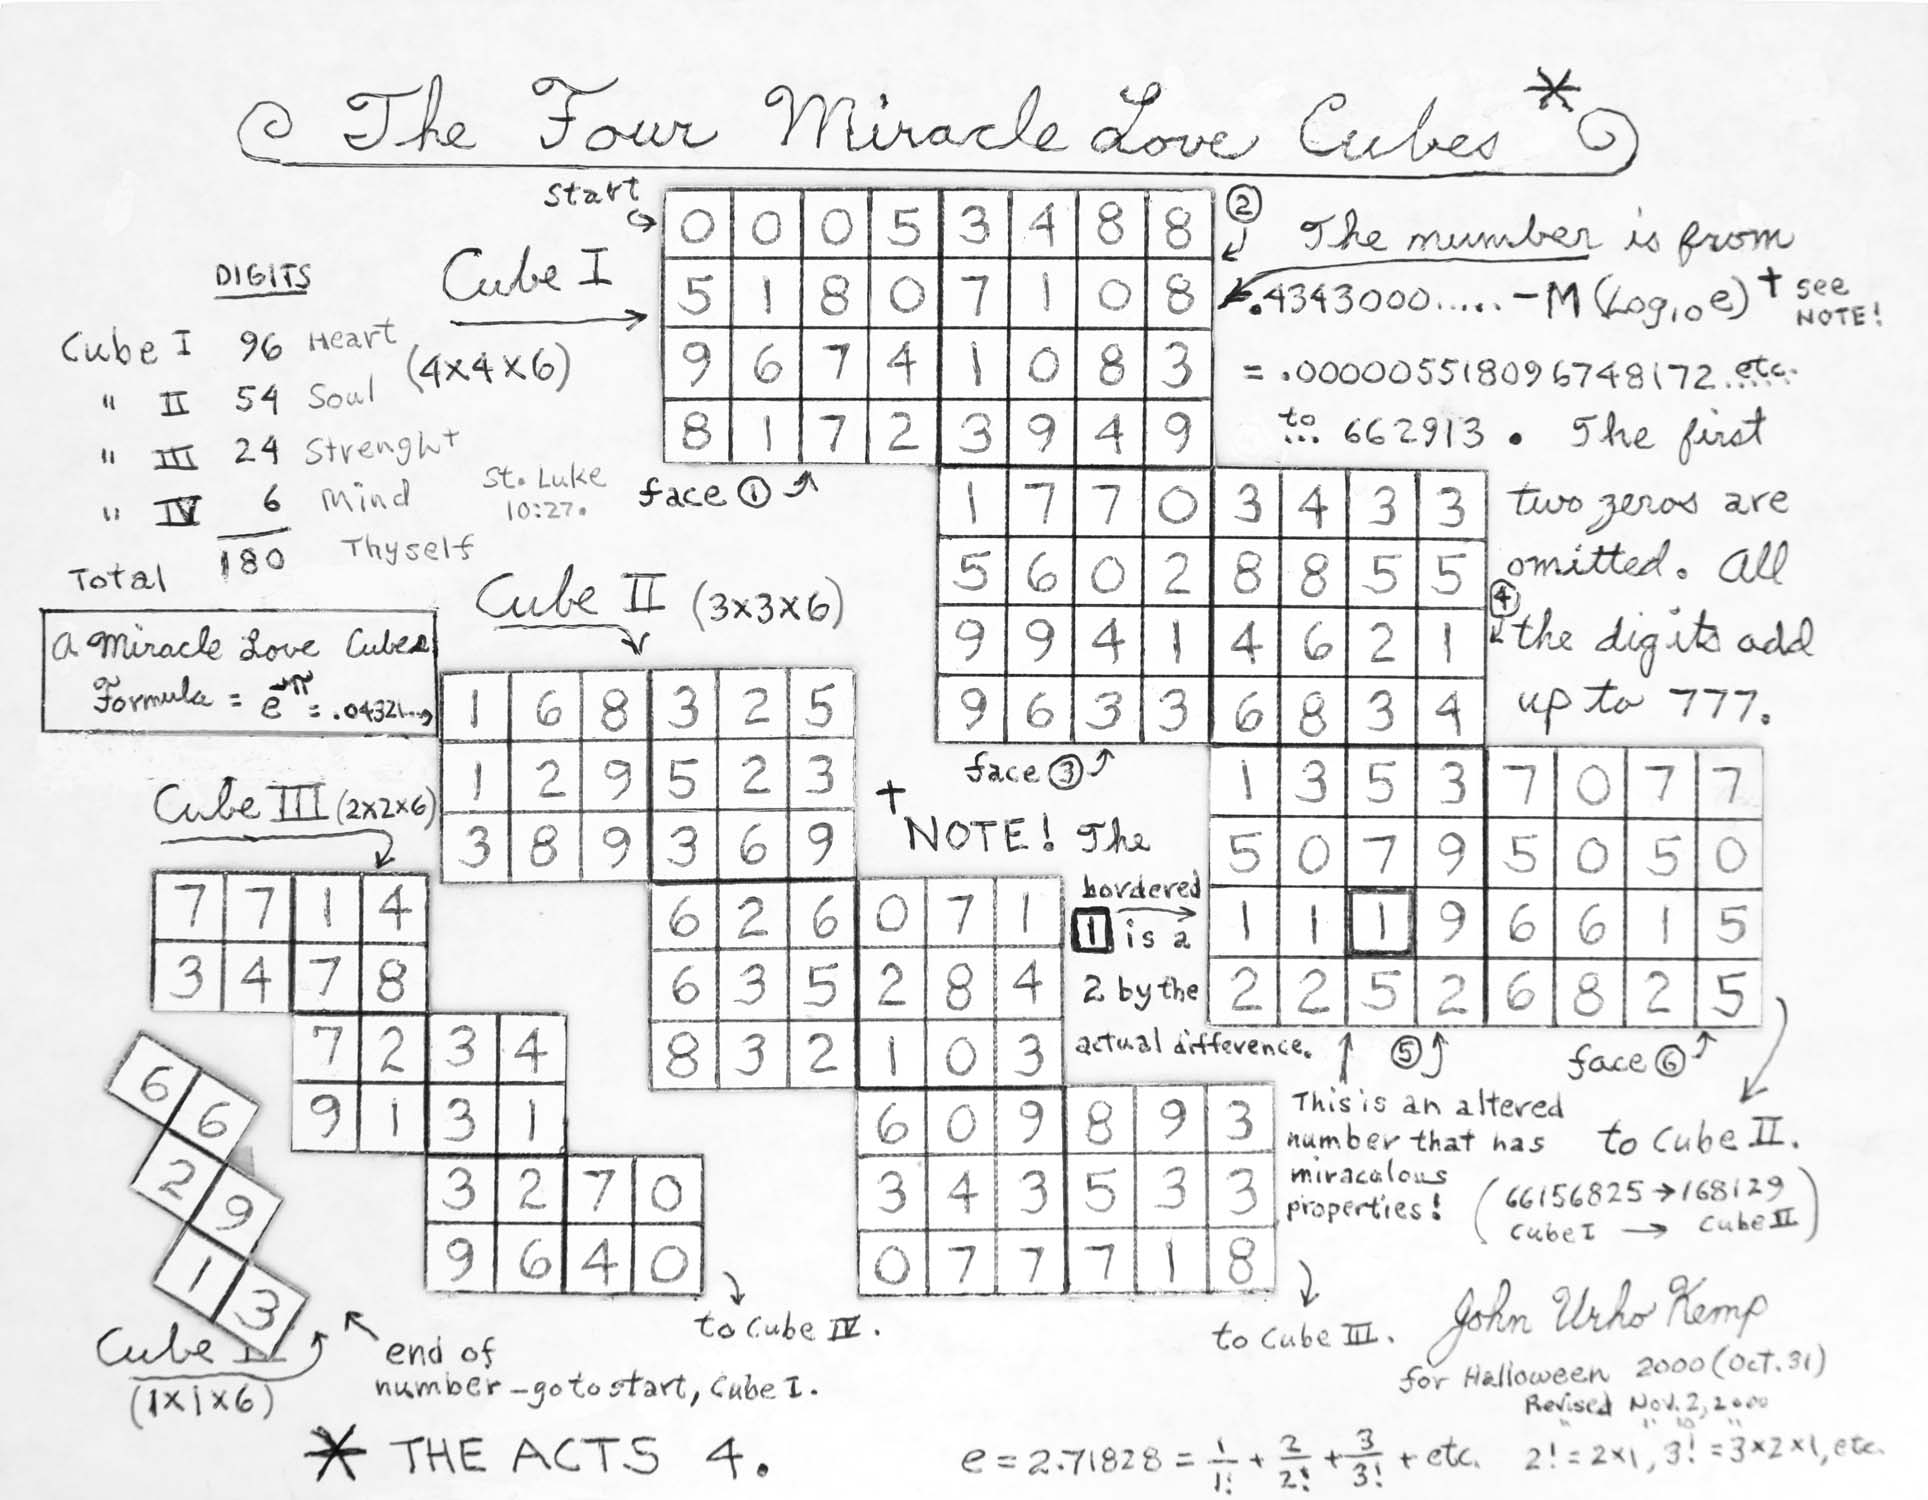 The Four Miracle Love Cubes *
Start
0 0 0 5 3 4 8 8
5 1 8 0 7 1 0 8
9 6 7 4 1 0 8 3
8 1 7 2 3 9 4 9
②
Cube I
(4×4×6)
face ①
DIGITS
Cube I 96 Heart
" II 54 Soul
" III 24 Strenght
" IV 6 Mind
Total 180 Thyself
St. Luke
10:27.
The number is from
.4343000..... -M (Log₁₀e) † see
NOTE!
= .000005518096748172..etc.
to... 662913. The first
two zeros are
omitted. All
the digits add
up to 777.
1 7 7 0 3 4 3 3
5 6 0 2 8 8 5 5
9 9 4 1 4 6 2 1
9 6 3 3 6 8 3 4
④
face ③
1 3 5 3 7 0 7 7
5 0 7 9 5 0 5 0
1 1 1 9 6 6 1 5
2 2 5 2 6 8 2 5
⑤
face ⑥
A Miracle Love Cubes
Formula = e^-π = .04321...
Cube II (3×3×6)
1 6 8 3 2 5
1 2 9 5 2 3
3 8 9 3 6 9
6 2 6 0 7 1
6 3 5 2 8 4
8 3 2 1 0 3
6 0 9 8 9 3
3 4 3 5 3 3
0 7 7 7 1 8
† NOTE! The
bordered
1 is a
2 by the
actual difference.
This is an altered
number that has
miraculous
properties!
to Cube II.
(66156825→168129
Cube I → Cube II)
Cube III (2×2×6)
7 7 1 4
3 4 7 8
7 2 3 4
9 1 3 1
3 2 7 0
9 6 4 0
to Cube IV.
to Cube III.
6 6
2 9
1 3
Cube
(1×1×6)
end of
number - go to start, Cube I.
John Urho Kemp
for Halloween 2000 (Oct. 31)
Revised Nov. 2, 2000
" " 10 "
* THE ACTS 4.
e = 2.71828 = 1/1! + 2/2! + 3/3! + etc. 2! = 2×1, 3! = 3×2×1, etc.